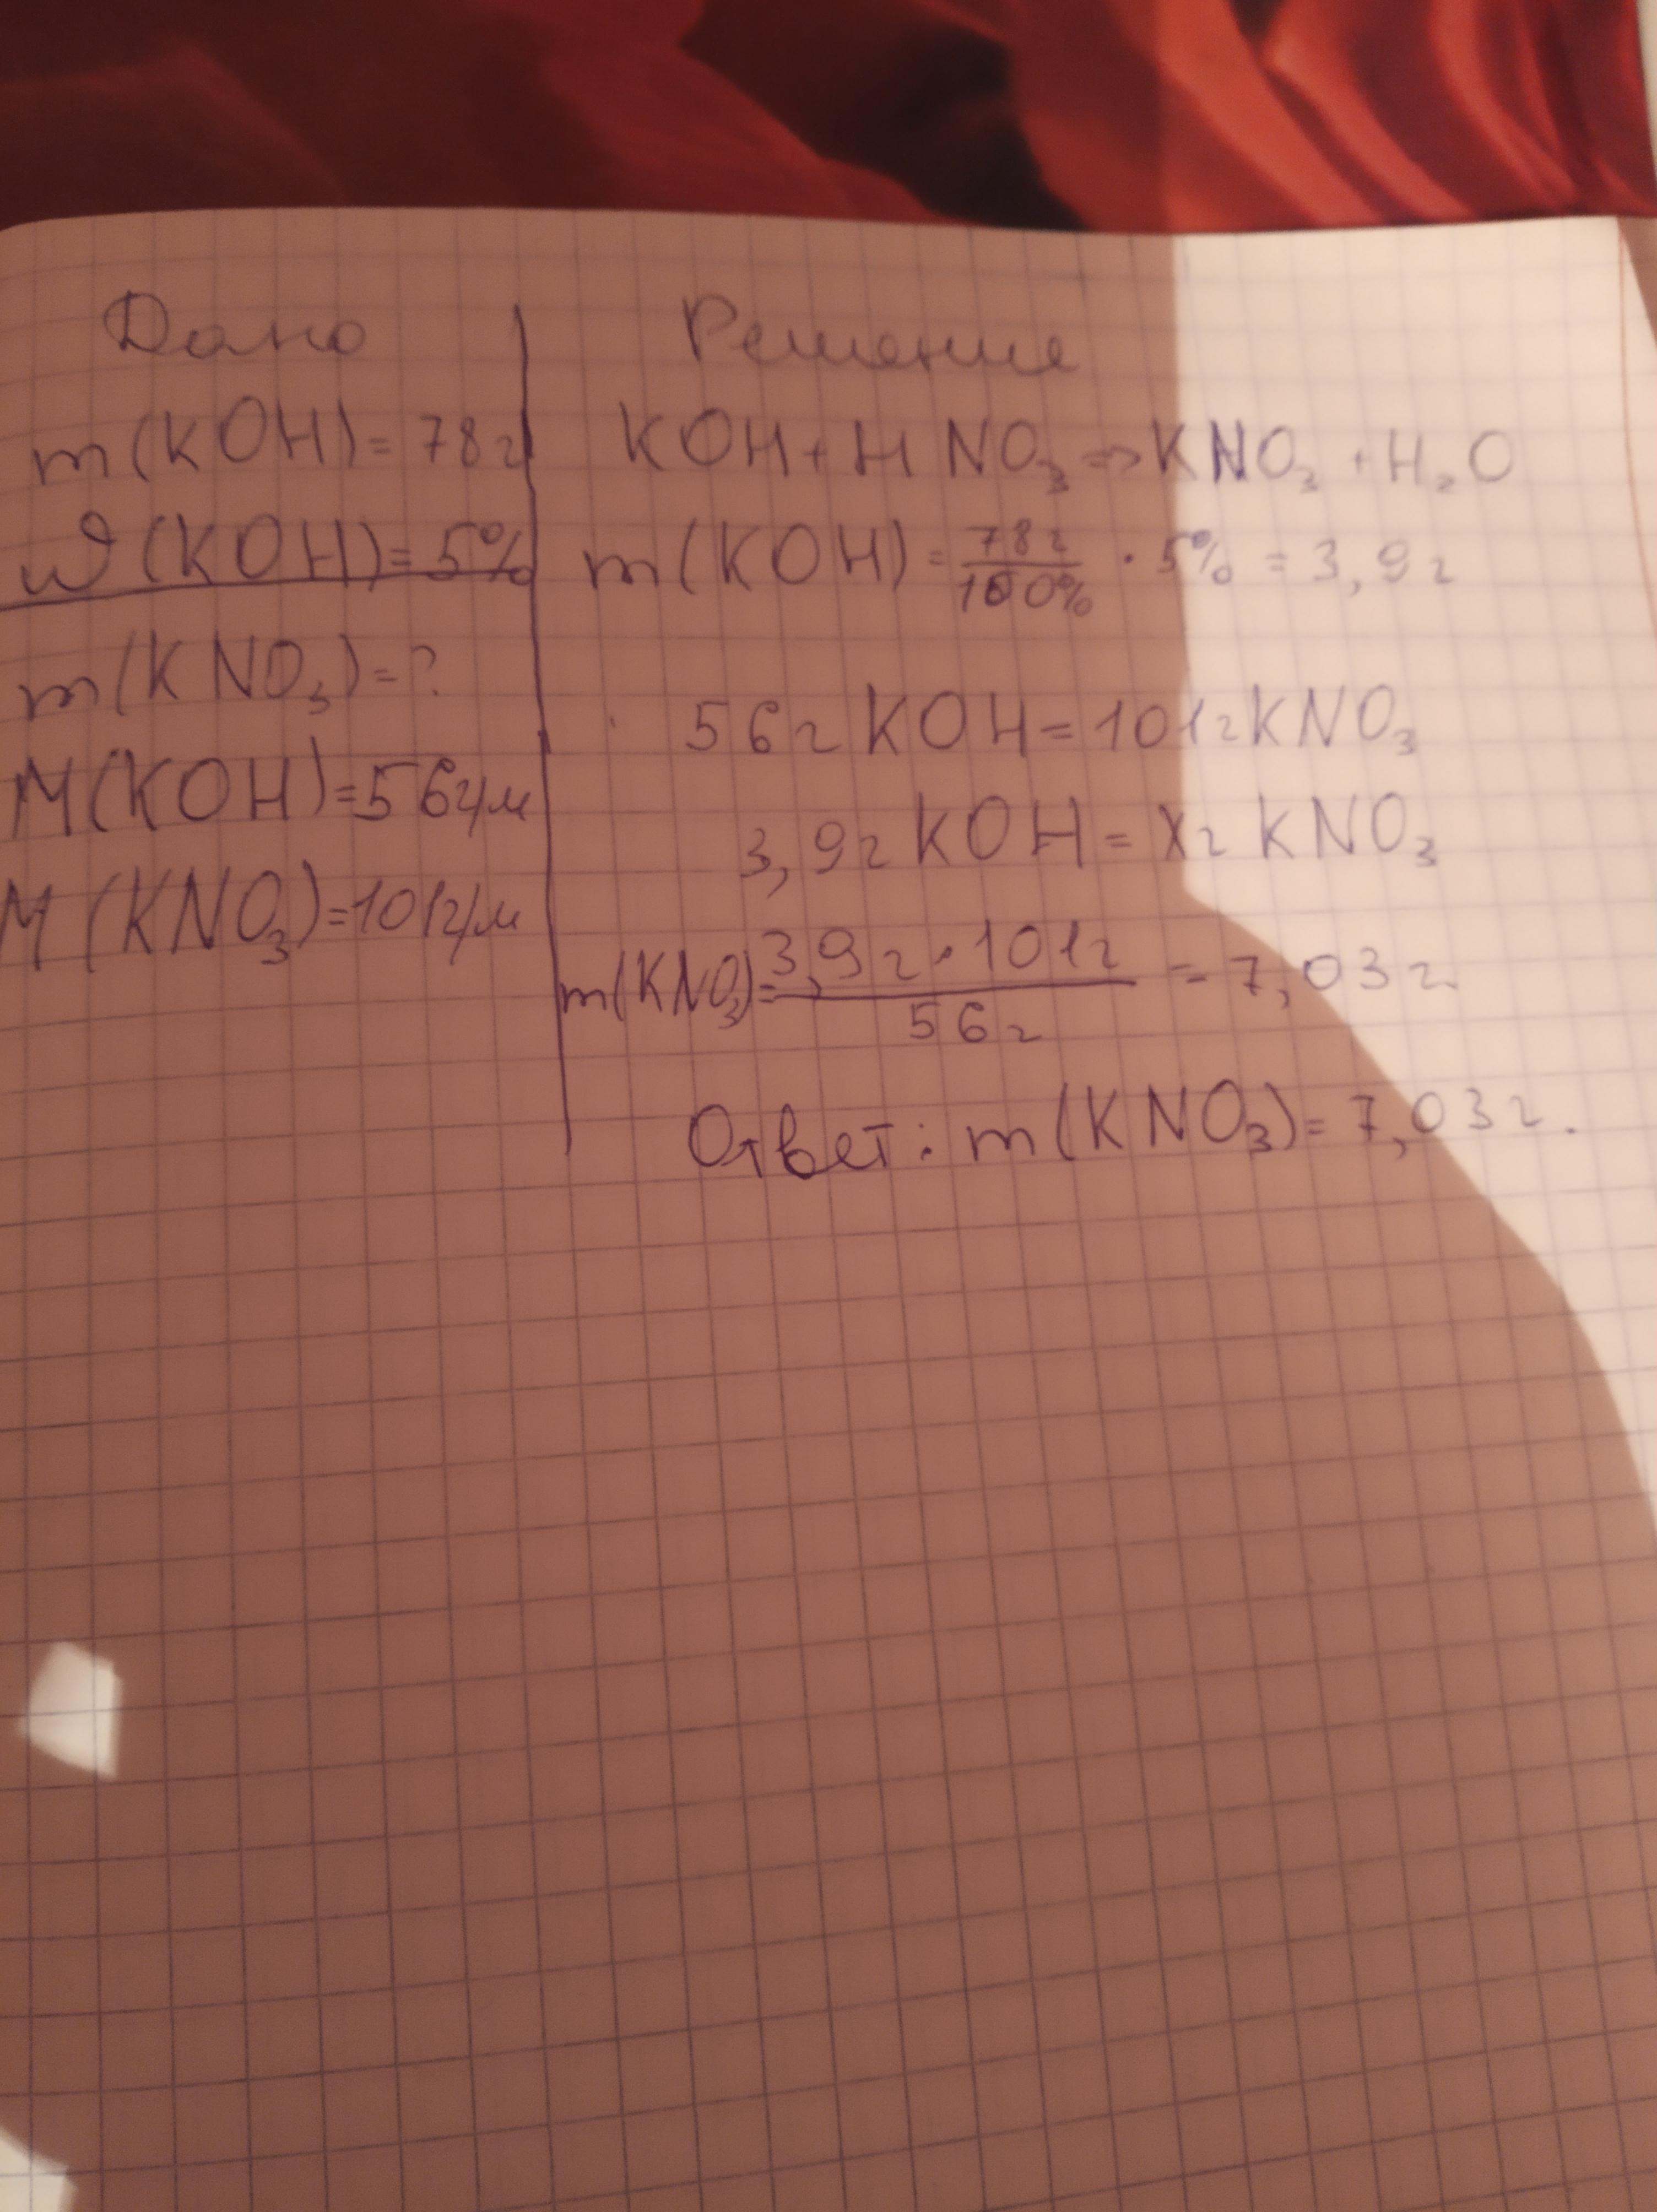 Дано
m(KOH)=78г
ω(KOH)=5%
m(KNO₃)=?
M(KOH)=56г/м
M(KNO₃)=101г/м
Решение
KOH+HNO₃⇒KNO₃+H₂O
m(KOH)=78г/100%·5%=3,9г
56г KOH=101г KNO₃
3,9г KOH=Xг KNO₃
m(KNO₃)=3,9г·101г/56г=7,03г
Ответ: m(KNO₃)=7,03г.